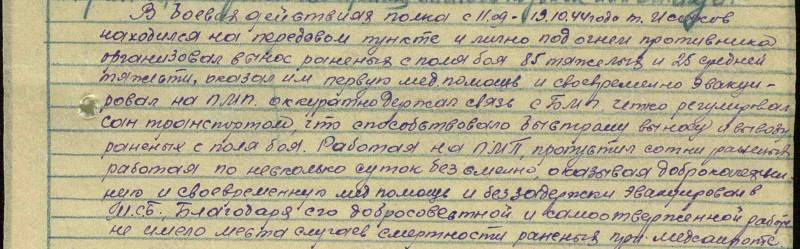 В боевых действиях полка с 11.09 - 19.10.44 года т.
находился на передовом пункте и лично под огнем противника
организовал вынос раненых с поля боя 85 тяжелых и 28 средней
тяжести, оказал им первую мед. помощь и своевременно эвакуи-
ровал на ПМП. аккуратно держал связь с БМП, четко регулировал
сан транспортом, что способствовало быстрому выносу и вывозу
раненых с поля боя. Работая на ПМП, пропустил сотни раненых
работая по несколько суток без сменно, оказывая доброкачествен-
ную и своевременную мед помощь и без задержки эвакуировал в
МСБ. Благодаря его добросовестной и самоотверженной работе
не имело места случаев смертности раненых при